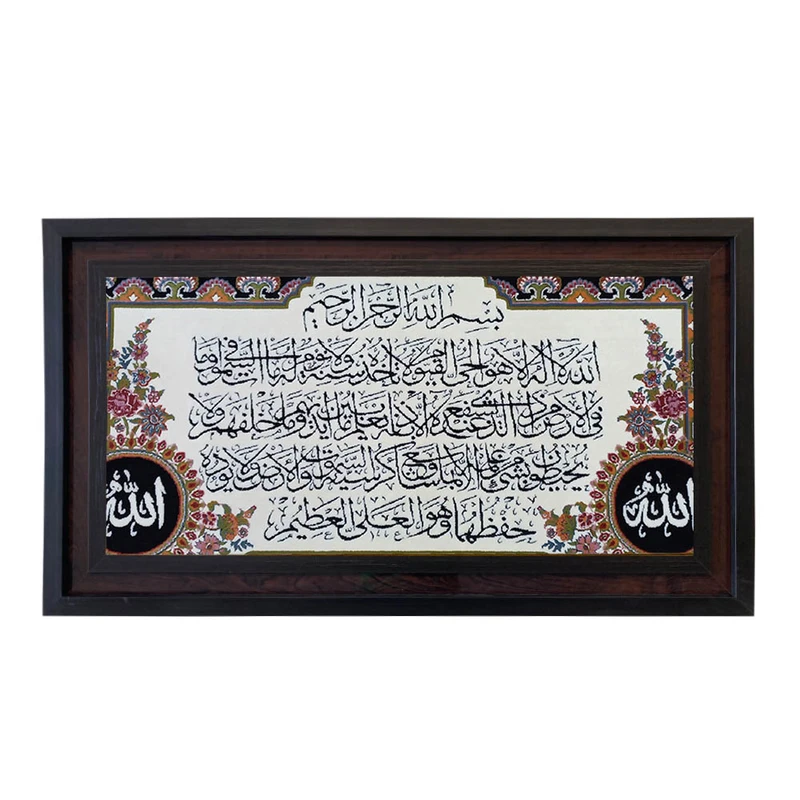 بِسْمِ اللَّهِ الرَّحْمَنِ الرَّحِيمِ
اللَّهُ لَا إِلَهَ إِلَّا هُوَ الْحَيُّ الْقَيُّومُ لَا تَأْخُذُهُ سِنَةٌ وَلَا نَوْمٌ لَهُ مَا فِي السَّمَوَاتِ وَمَا
فِي الْأَرْضِ مَنْ ذَا الَّذِي يَشْفَعُ عِنْدَهُ إِلَّا بِإِذْنِهِ يَعْلَمُ مَا بَيْنَ أَيْدِيهِمْ وَمَا خَلْفَهُمْ وَلَا
يُحِيطُونَ بِشَيْءٍ مِنْ عِلْمِهِ إِلَّا بِمَا شَاءَ وَسِعَ كُرْسِيُّهُ السَّمَوَاتِ وَالْأَرْضَ وَلَا يَؤُدُهُ
حِفْظُهُمَا وَهُوَ الْعَلِيُّ الْعَظِيمُ
الله
الله